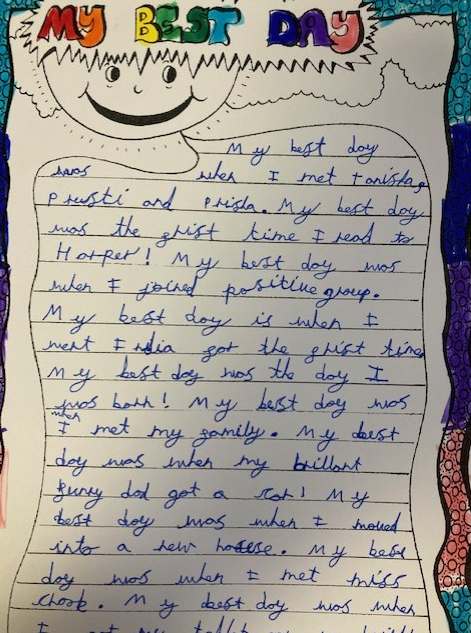 MY BEST DAY
My best day
was when I met tanisha,
prusti and Prisha. My best day
was the first time I read to
Harper! My best day was
when I joined positive group.
My best day is when I
went India for the first time
My best day was the day I
was born! My best day was
when
I met my family. My best
day was when my brillant
funny dad got a car! My
best day was when I moved
into a new house. My best
day was when I met miss
chook. My best day was when
I got my